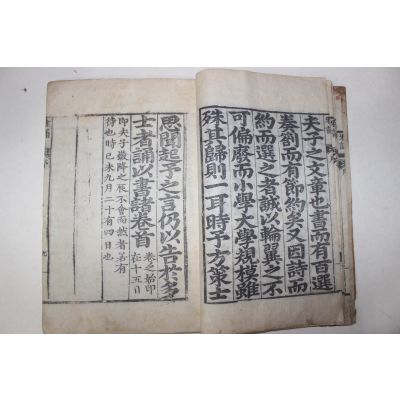 夫子之文章也書而有百選
奏劄而有節約矣又因詩而
約而選之者誠以輪翼之不
可偏廢而小學大學規模雖
殊其歸則一耳時予方策士
思聞起予之言仍以告於多
士者誦以書諸卷首
卷之始印
在十五日
即夫子嶽降之辰不會而然者若有
待也時己未九月二十有四日也